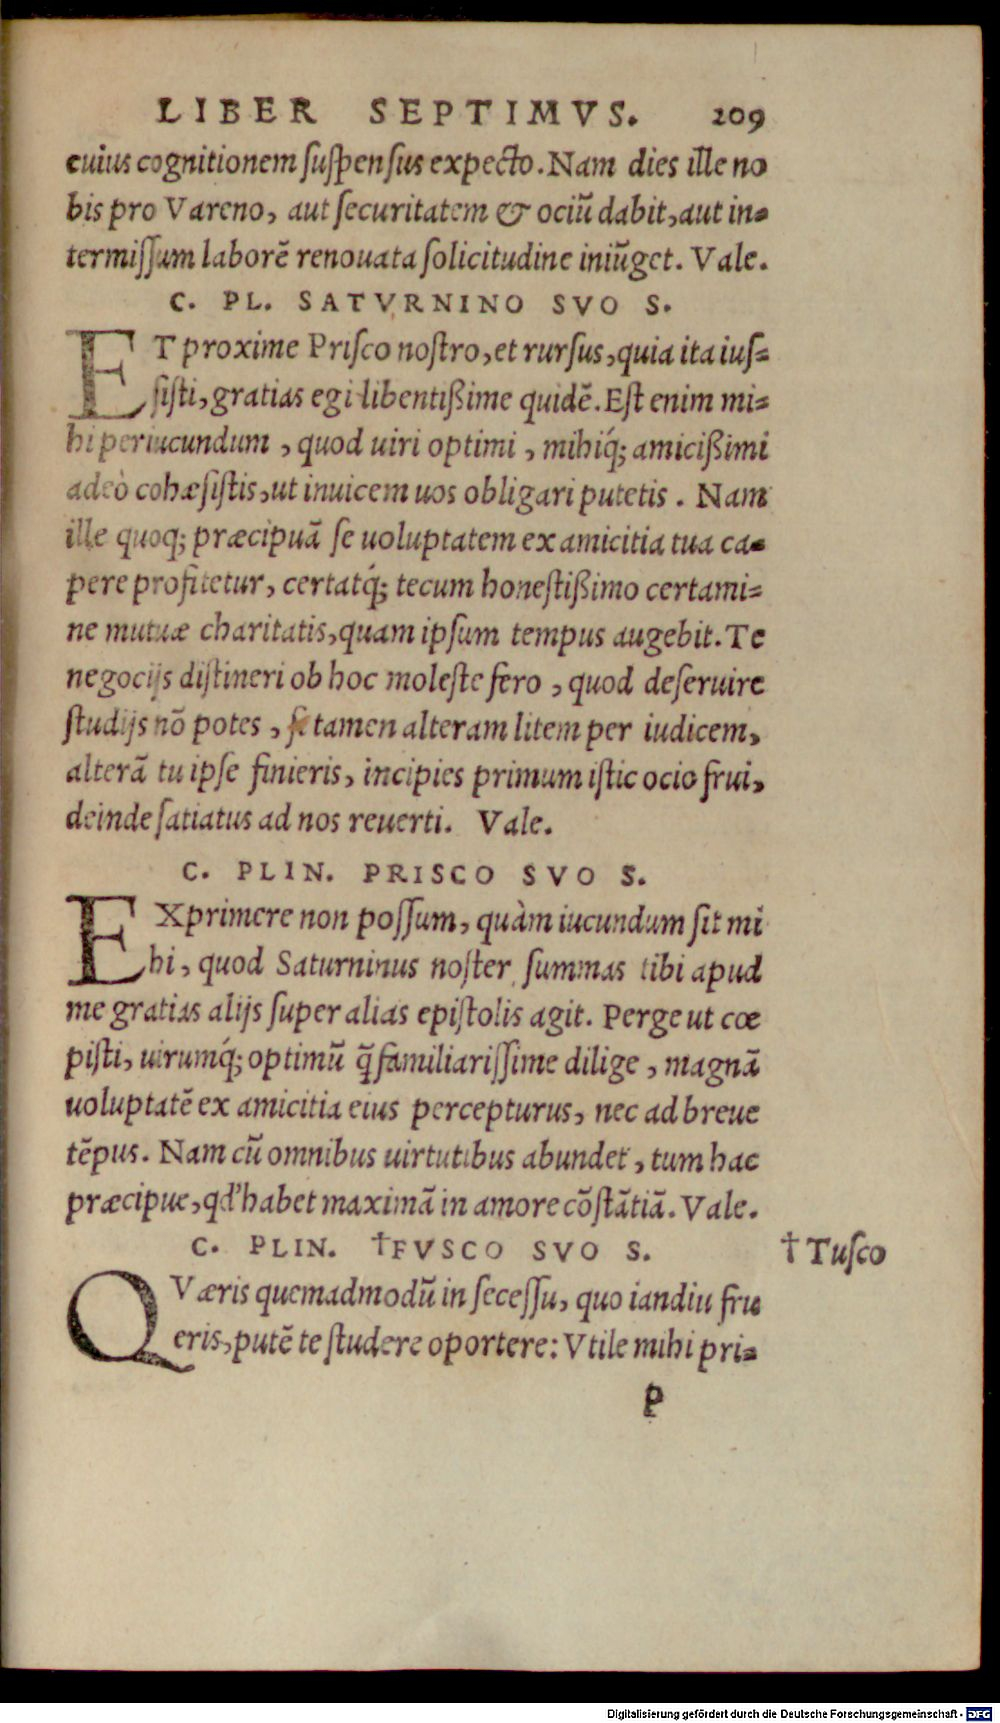 LIBER SEPTIMVS. 209
cuius cognitionem ſuſpenſus expecto. Nam dies ille no
bis pro Vareno, aut ſecuritatem & ociũ dabit, aut in=
termiſſum laborẽ renouata ſolicitudine iniũget. Vale.
C. PL. SATVRNINO SVO S.
ET proxime Priſco noſtro, et rurſus, quia ita iuſ=
ſiſti, gratias egi libentißime quidẽ. Eſt enim mi=
hi periucundum, quod uiri optimi, mihiq́; amicißimi
adeò cohæſiſtis, ut inuicem uos obligari putetis. Nam
ille quoq; præcipuã ſe uoluptatem ex amicitia tua ca=
pere profitetur, certatq́; tecum honeſtißimo certami=
ne mutuæ charitatis, quam ipſum tempus augebit. Te
negocijs diſtineri ob hoc moleſte fero, quod deſeruire
ſtudijs nõ potes, ſi tamen alteram litem per iudicem,
alterã tu ipſe finieris, incipies primum iſtic ocio frui,
deinde ſatiatus ad nos reuerti. Vale.
C. PLIN. PRISCO SVO S.
EXprimere non poſſum, quàm iucundum ſit mi
hi, quod Saturninus noſter ſummas tibi apud
me gratias alijs ſuper alias epiſtolis agit. Perge ut cœ
piſti, uirumq́; optimũ q̃ familiariſſime dilige, magnã
uoluptatẽ ex amicitia eius percepturus, nec ad breue
tẽpus. Nam cũ omnibus uirtutibus abundet, tum hac
præcipue, qd' habet maximã in amore cõſtãtiã. Vale.
C. PLIN. †FVSCO SVO S.
† Tuſco
QVæris quemadmodũ in ſeceſſu, quo iandiu fru
eris, putẽ te ſtudere oportere: Vtile mihi pri=
P
Digitalisierung gefördert durch die Deutsche Forschungsgemeinschaft - DFG